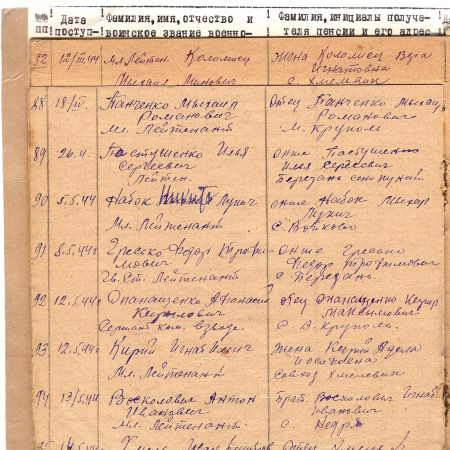 № пп
Дата поступ-
Фамилия, имя, отчество и воинское звание военно-
Фамилия, инициалы получа-теля пенсии и его адрес
12/III.44 Мл. Лейтен Коломиец
Михаил
Жена Коломиец Вера
Игнатовна
с. Хмелевик
88 18/IV. Панченко Михаил
Романович
Мл. Лейтенант
Отец Панченко
Романович
м. Круполь
89 26.4. Пастушенко Илья
Сергеевич
Лейтен.
Сергеевич
Березань
90 5.5.44 Набок Никита Лукич
Мл. Лейтенант
Набок
Лукич
с. Войково
91 8.5.44г Гресько Федор Трофи-
мович
Гв. Ст. Лейтенант
Федор Трофимович
с. Березань
92 12.5.44г Опанащенко Афанасий
Кирилович
Сержант ком. взвода
Отец Опанащенко Кирил
Максимович
с. В. Круполь.
93 12.5.44г Кирий Игнат
Мл. Лейтенант
Жена Кирий Адела
Иосиповна
Совхоз Хмелевик
94 13/5.44 Восколович Антон
Иванович
Мл. Лейтенант.
Брат Восколович Игнат
Иванович
с. Недра